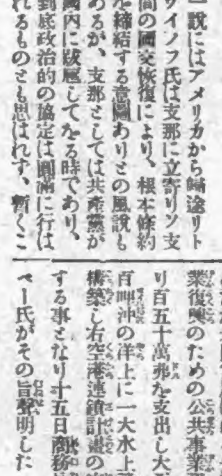 一說にはアメリカから歸途リト
ヴイノフ氏は支那に立寄りソ支
間の國交恢復により、根本條約
を締結する意圖ありとの風說も
あるが、支那としては共產黨が
國內に跋扈してをる時であり、
到底政治的の協定は圓滿に行は
れるものとも思はれず、暫くこ
業復興のための公共事業
り百五十萬弗を支出し大
百哩沖の洋上に一大水上
構築し右空港連鎖計畫の
する事となり十五日商務
ペー氏がその旨聲明した